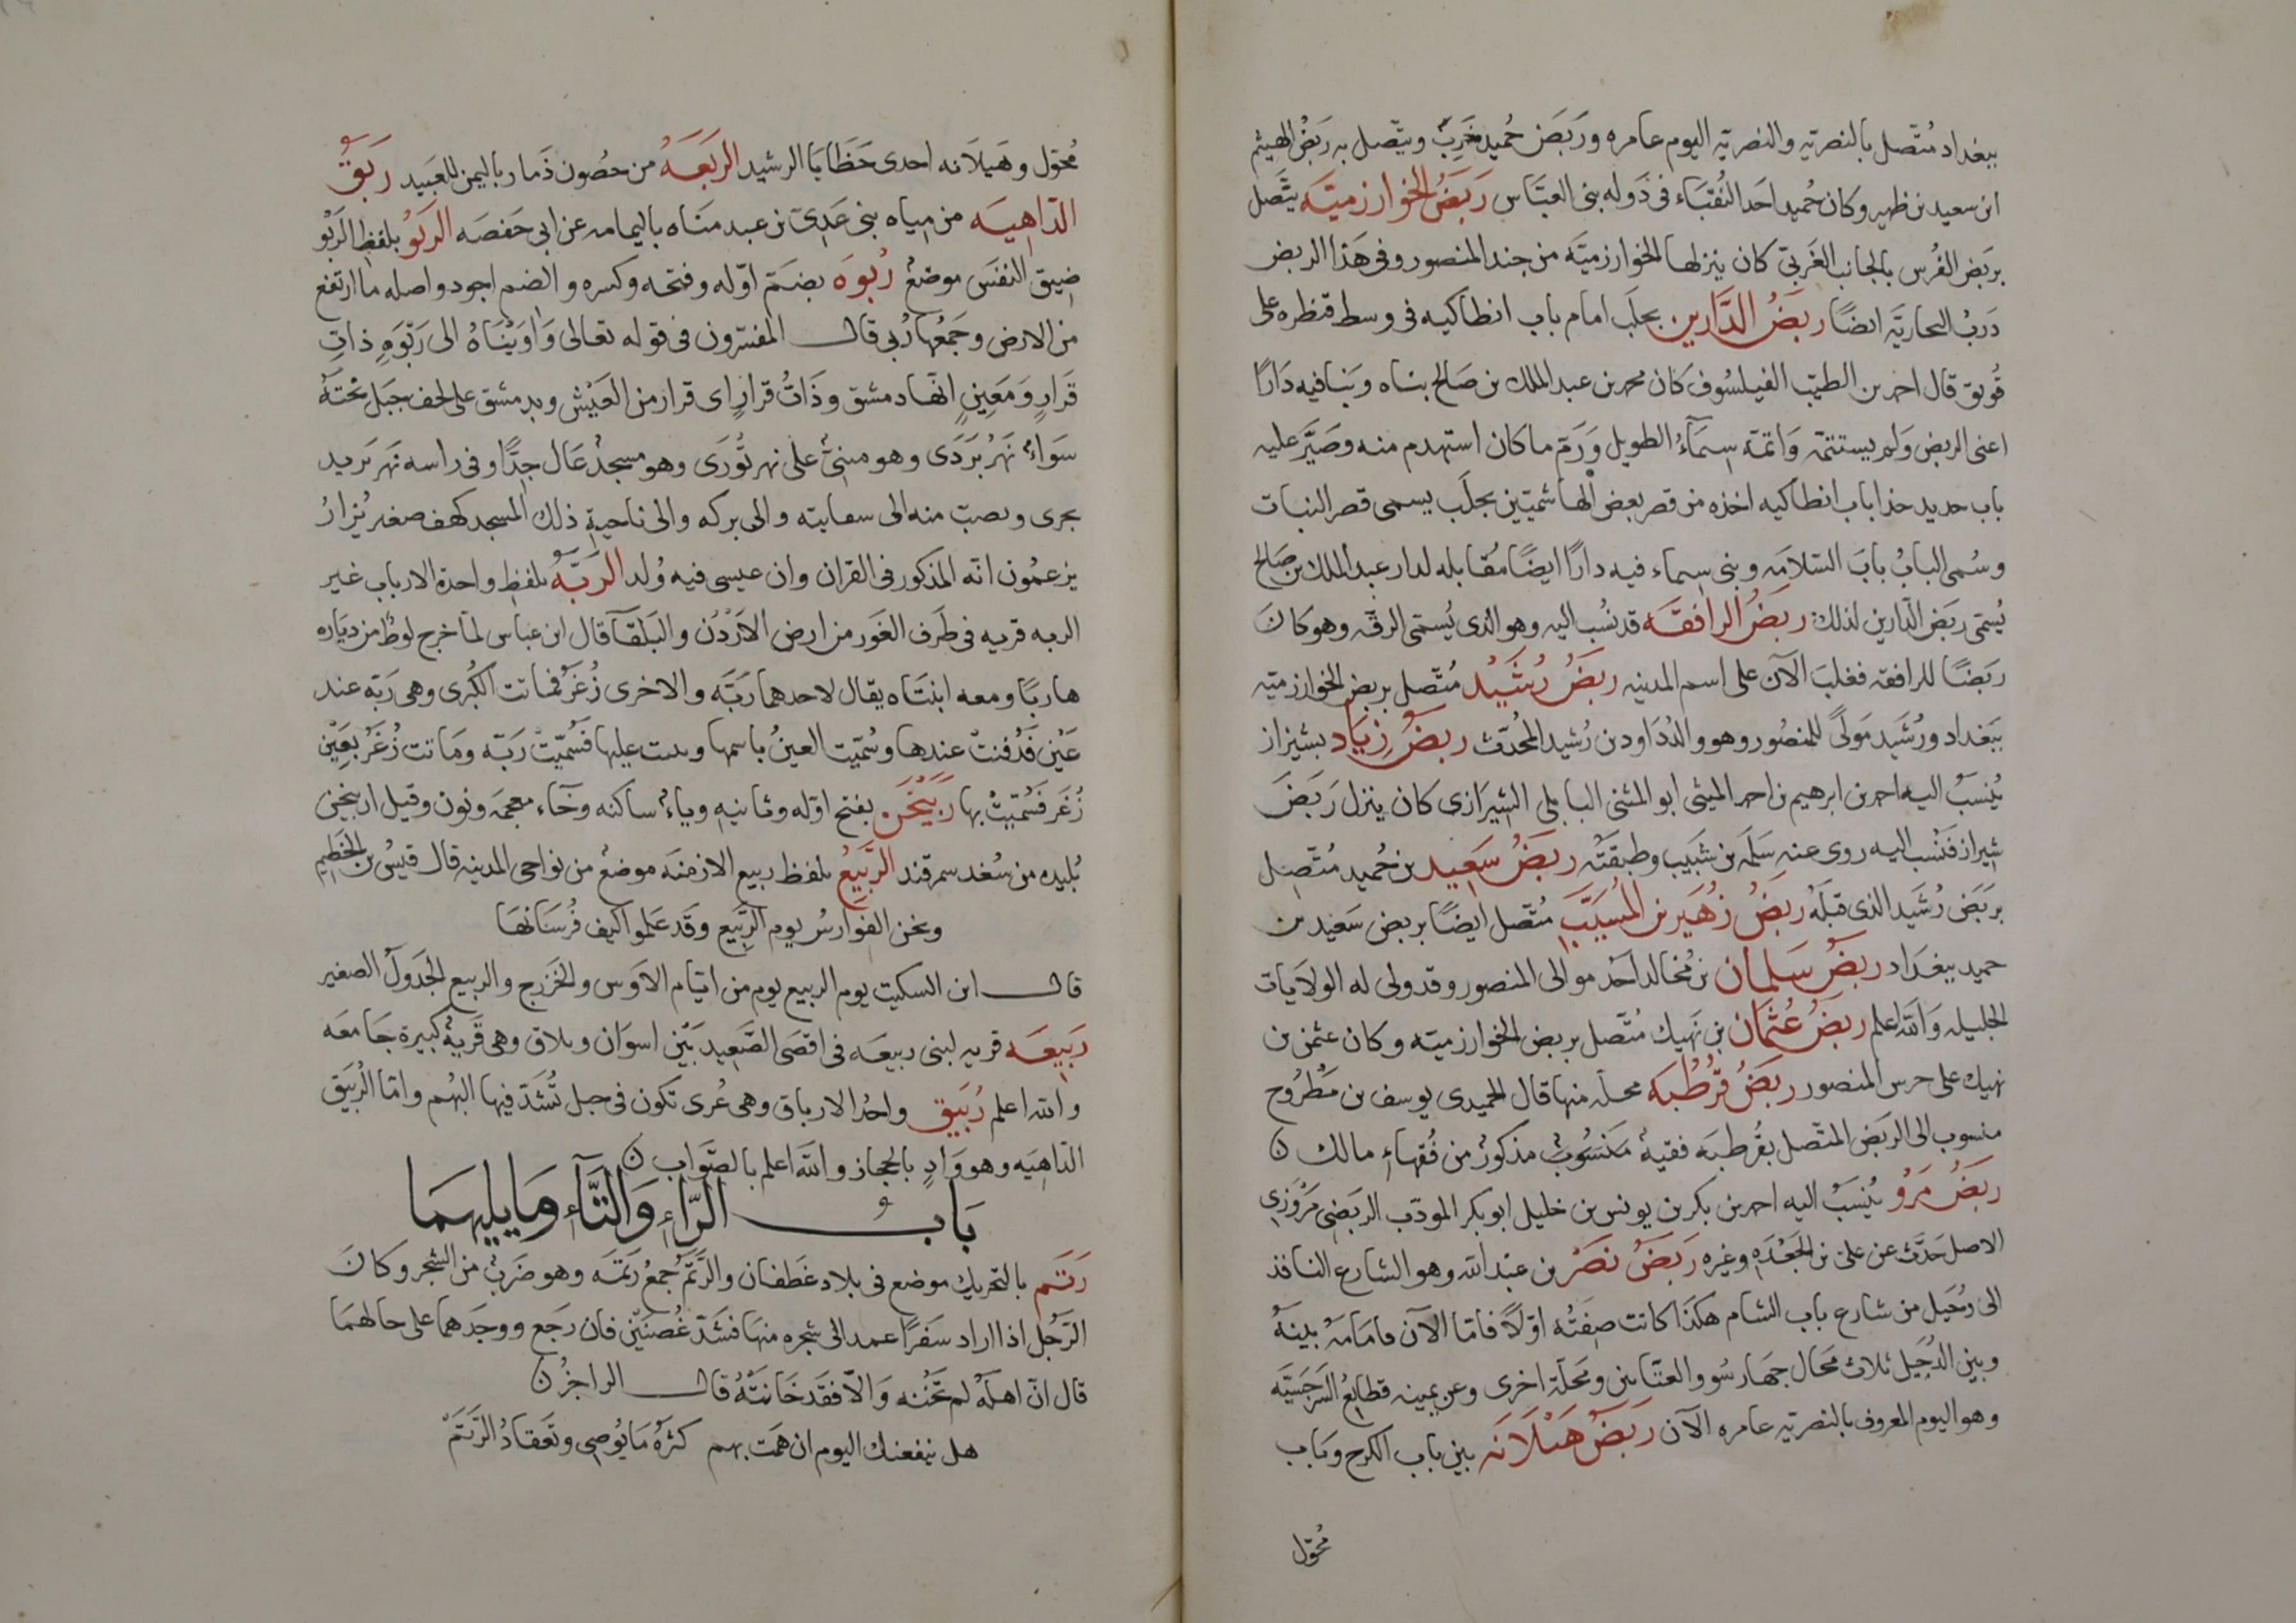 ببغداد مُتّصل بالنصريّه والنصريّه اليوم عامره ورَبَض حُميد خَرِبٌ ويتّصل به رَبَضُ الهيثم
ابن سعيد بن ظهير وكان حُميد احَد النُقبَاء فى دَوله بنى العبّاس رَبَضُ الخوارزميّه يتَّصل
بربَض الفُرس بالجانب الغَربىّ كان ينزلها الخوارزميّه من جند المنصور وفى هَذا الربض
دَربُ النحاريّه ايضًا ربَضُ الدَّارين بحلَب امام باب انطاكيه فى وسط قنطره على
قُويق قال احمد بن الطيّب الفيلسُوف كان محمد بن عبد الملك بن صَالح بناه وبَنا فيه دَارًا
اعنى الربض ولم يستتمّه وَاتمّه سِيمَآءُ الطويل وَرَمّ ما كان استهدم منه وصَيَّر عليه
باب حديد حذا باب انطاكيه اخذه من قصر بعض الهاشميّين بحلَب يسمى قصر البنات
وسُمى البابُ بابَ السّلامَه وبنى سيماء فيه دارًا ايضًا مُقابله لدار عبد الملك بن صَالح
يُسَمّى ربَض الدّارين لذلك ربَضُ الرافقَه قد نسُب اليه وهو الذى يُسمّى الرقّه وهو كانَ
ربَضًا للرافقه فغلبَ الآن على اسم المدينه ربَضُ رُشَيْد مُتّصل بربض الخوارزميّه
ببَغداد ورُشَيد مَولىً للمنصُور وهو والدُ دَاود بن رُشيد المحُدّث ربَضُ زِيَاد بشيراز
يُنِسَبُ اليه احمد بن ابرهيم بن احمد الميثى ابو المثنى الباهلى الشيرَازى كان ينزل رَبَضَ
شيراز فَنسُب اليه روى عنه سَلمَه بن شَبيب وطبقتُه ربَضُ سَعِيد بن حُميد مُتّصِل
بربَض رُشَيد الذى قبلَهُ ربَضُ زُهَير بن المُسَيَّب مُتّصل ايضًا بربض سَعيد بن
حميد ببغدَاد ربَضُ سَلمان بن مُخالد احَد موالى المنصور وقد ولى له الولايات
الجليله وَالله اعلم ربَضُ عُثمَان بن نَهيك مُتّصل بربض الخوارزميّه وكان عثمن بن
نهيك على حرس المنصور ربَضُ قُرْطُبَه محلّه منها قال الحميدى يوسف بن مَطْرُوح
منسوب الى الربَض المتّصل بقُرطبَه فقيهٌ مَنسُوبٌ مذكورٌ من فُقهاءِ مالك ن
ربَضُ مَرْو يُنِسَبُ اليه احمد بن بكر بن يونس بن خليل ابو بكر المودّب الربَضى مَرْوَزى
الاصل حَدَّث عن على بن الجَعْدَه وغيره رَبَضُ نَصْر بن عبَد الله وهو الشارع النافذ
الى دُجَيل من شارع باب الشام هكذَا كانت صِفَتُه اوّلاً فامّا الآن فامَامَهُ بينَهُ
وبين الدُجَيل ثلاث مَحَال جهَار سُو والعتّابين ومَحَلّه اخرى وعن يمينه قطايعُ السَرجَسِيّه
وهو اليوم المعروف بالنصريّه عامره الآن رَبَضُ هَيْلَانَه بين باب الكرخ وبَاب
مُحوّل
مُحوّل وهَيلَانه احدى حَظَايَا الرشيد الربَعَهُ من حصُون ذَمار باليمن للعَبيد رَبَقُ
الدّاهيَه من مياه بنى عَدِىّ بن عبد مَنَاه باليمامه عن ابى حَفصَه الرَبْوُ بلفظ الرَبْو
ضيق النفَس موضعٌ رُبوَه بضَم اوّله وفتحه وكسره والضم اجود واصله ما ارتفع
من الارض وجَمعُها رُبى قال المفسّرون فى قوله تعالى وَاوَيْنَاهُ الى رَبْوَهٍ ذاتِ
قَرَارٍ وَمَعِينٍ انّها دمشق وذَاتُ قرارٍ اى قرار من العَيْش وبدمشق على لحف جبَل تحْتَهُ
سَوَاءٌ نَهَرُ بَرَدَى وهو مبنىٌّ على نهر تُورَى وهو مسجدٌ عَال جِدًّا وفى راسه نهر يَزيد
يجرى ويصبّ منه الى سقايته والى بركه والى ناحيةِ ذلك المسجد كهف صغير يُزارُ
يزعمُون انّه المذكور فى القران وان عيسى فيه وُلد الربّهُ بلفظِ واحدة الارباب غير
الربه قريه فى طَرَف الغَور من ارض الاَرْدُن والبلقآ قال ابن عباس لمّا خرج لوطٌ من ديَاره
هاربًا ومعه ابنتَاه يقال لاحدهما رَبّه والاخرى زُغَر فماتت الكُبرى وهى رَبّه عند
عَيْن فَدُفنتْ عندها وسُمّيت العينُ باسمها وبنت عليها فَسُمّيَتْ رَبّه ومَاتت زُغَرُ بعَين
زُغَر فَسُمّيَتْ بها رَبَيْخَن بفتح اوّله وثانيه وياءٌ ساكنه وخَاء معجمَه ونون وقيل اربيخن
بُليده من سُغد سمرقند الرَّبِيعُ بلفظ ربيع الازمنَه موضعٌ من نواحى المدينه قال قيسُ بن الخَطيم
ونحن الفوارسُ يوم الرَبيعِ وقَد عَلموا كيف فُرسَانهَا
قال ابن السكيت يوم الربيع يوم من ايّام الاَوس والخَزرج والربيع الجَدوَلُ الصغير
رَبِيعَه قريه لبنى ربيعَه فى اقصَى الصَّعيد بَيْن اسوَان وبلاق وهى قَريةٌ كبيرة جَامعَه
والله اعلم رُبَيق واحدُ الارباق وهى عُرى تكون فى حبل تُشَدّ فيها البُهم وامّا الرُبَيق
الدّاهِيَه وهو وَادٍ بالحجاز والله اعلم بالصّوَاب ن
بَابُ الرّاءِ وَالتَّآءِ وَمَا يليهمَا
رَتَم بالتحريك موضع فى بلاد غَطفان والرَّتَمُ جمعُ رَتمَه وهو ضَربٌ من الشجر وكانَ
الرّجُل اذا اراد سَفرًا عمد الى شجره منهَا فشَدّ غُصنَيْن فان رجَع ووجَدهما على حالهمَا
قال انّ اهلَهُ لم تَخُنه وَالّا فقَد خَانتْهُ قال الراجزُ ن
هل ينفعنك اليوم ان همَت بهم كثرهُ مَا يُوصِى وتَعَقادُ الرَّتَمْ